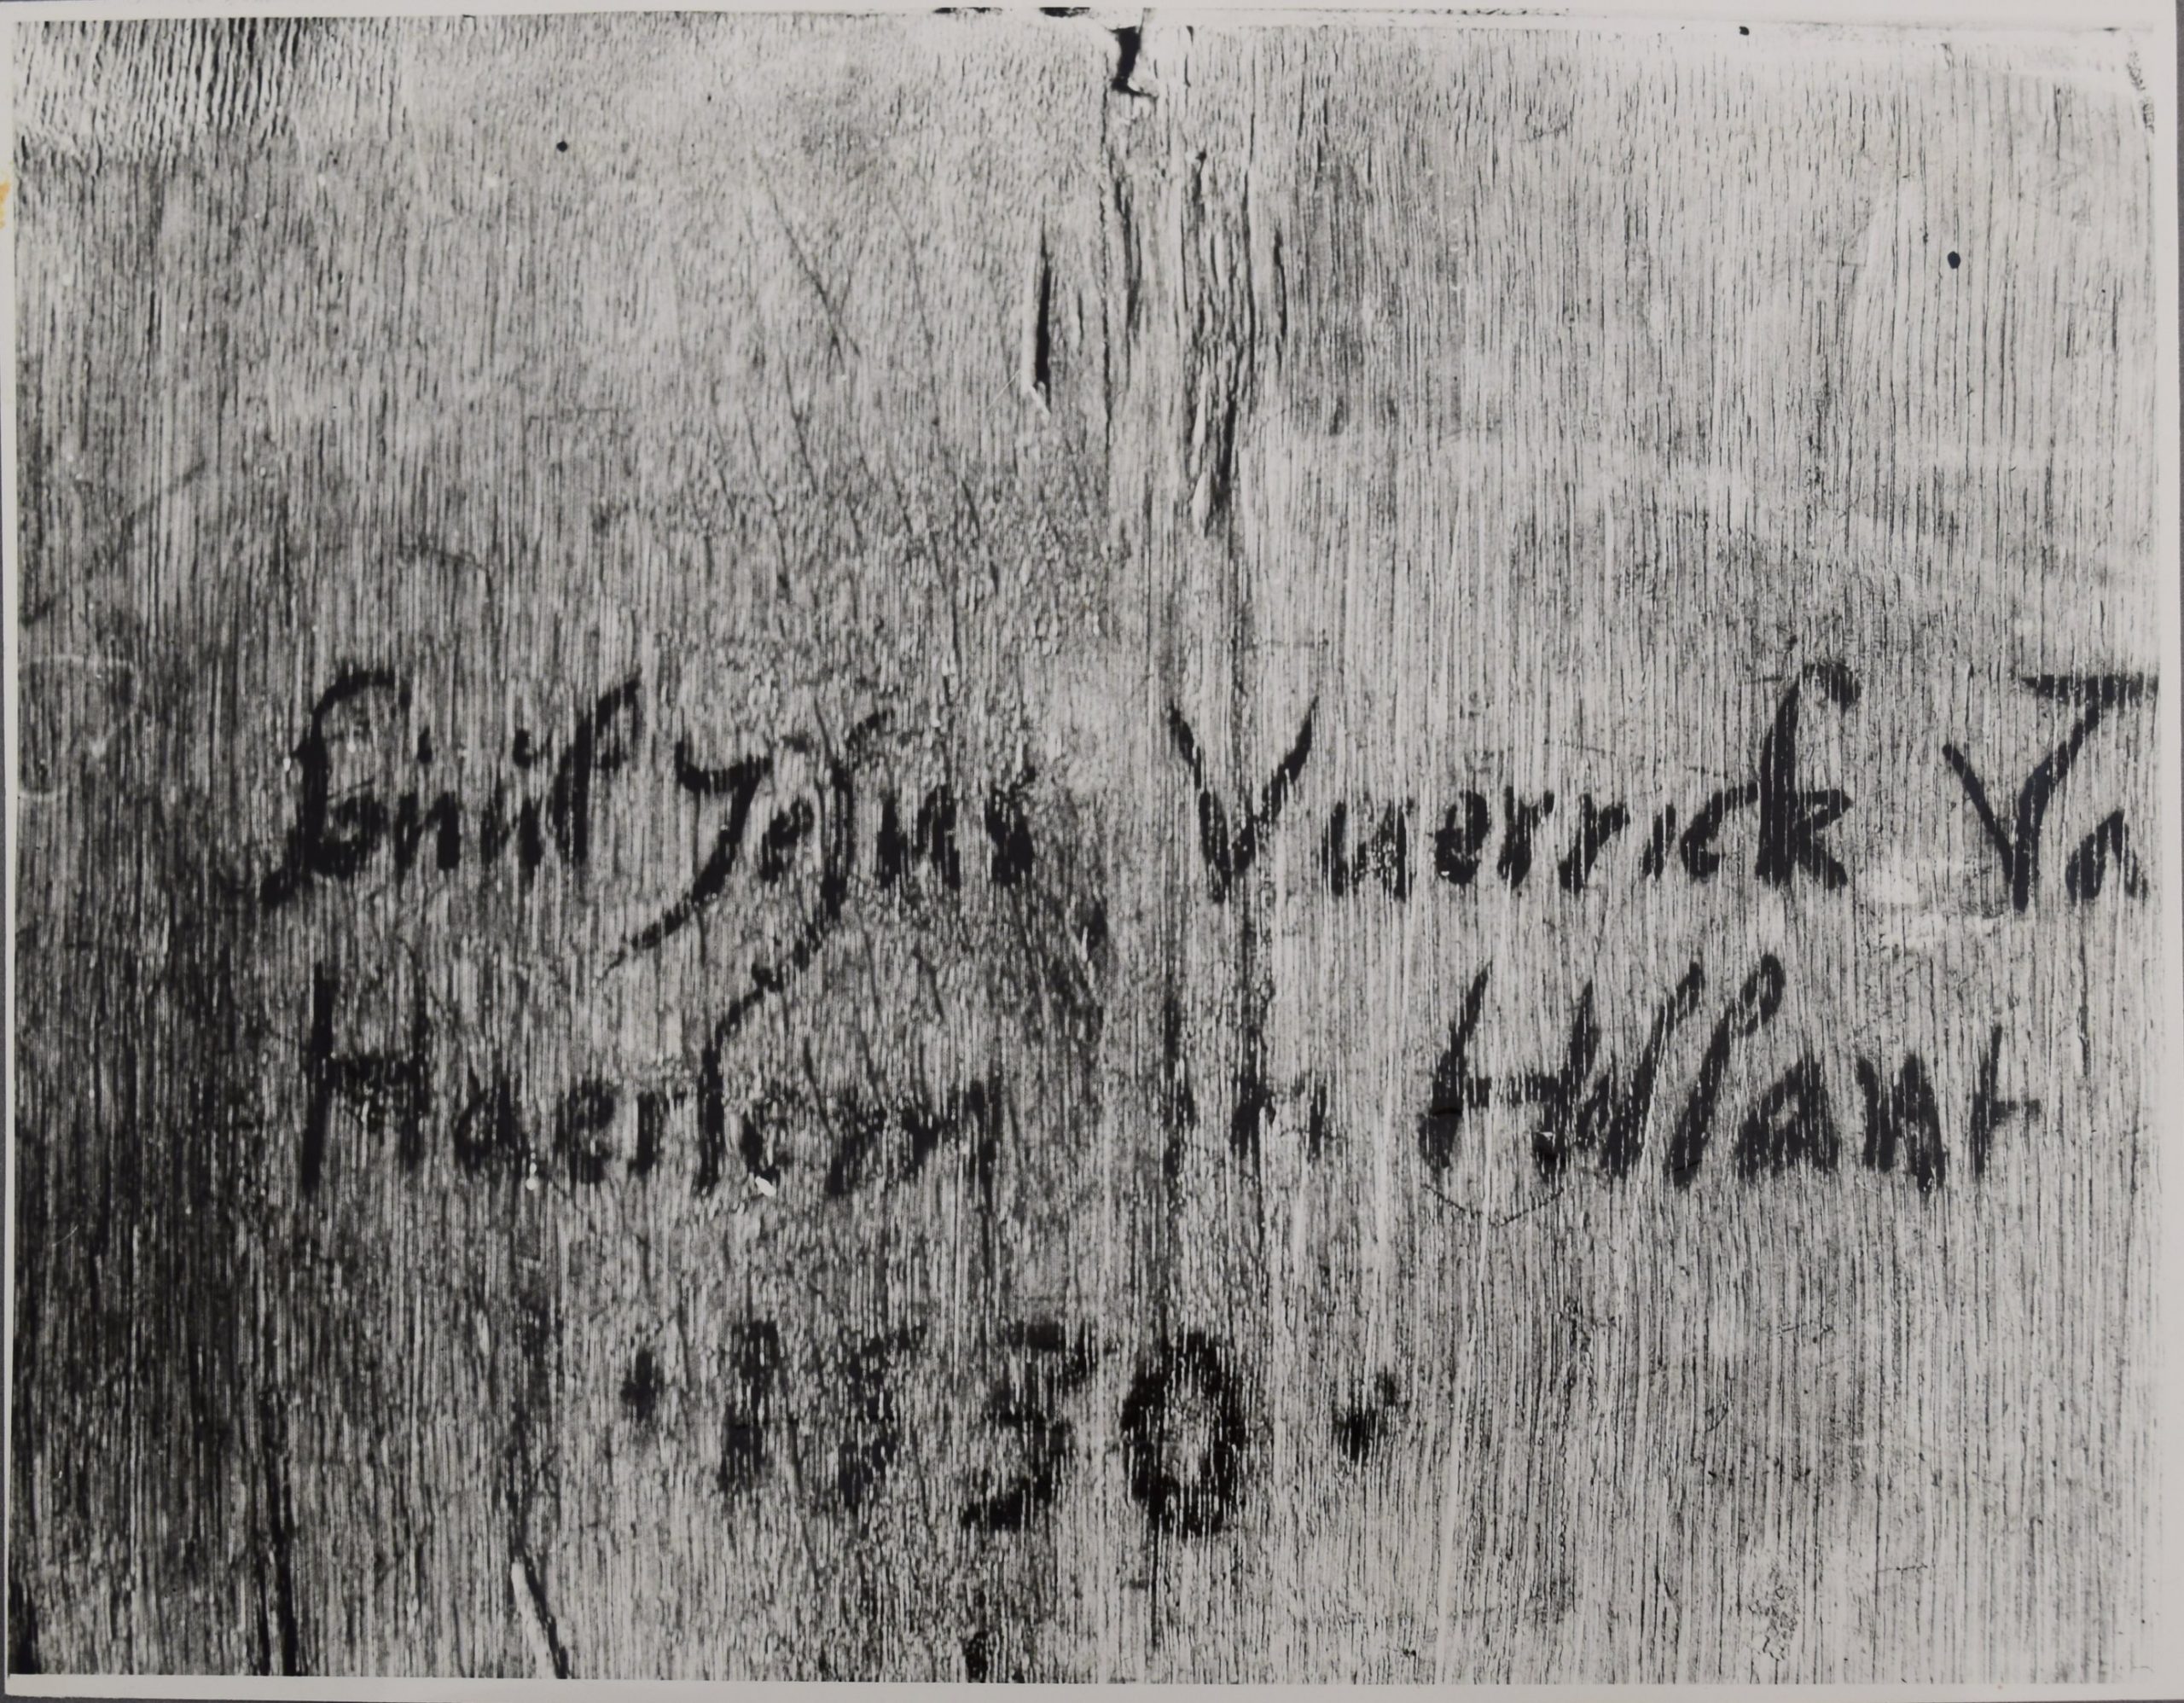 Jesus Vuerrick Va
Haerlem in Hollant
1530